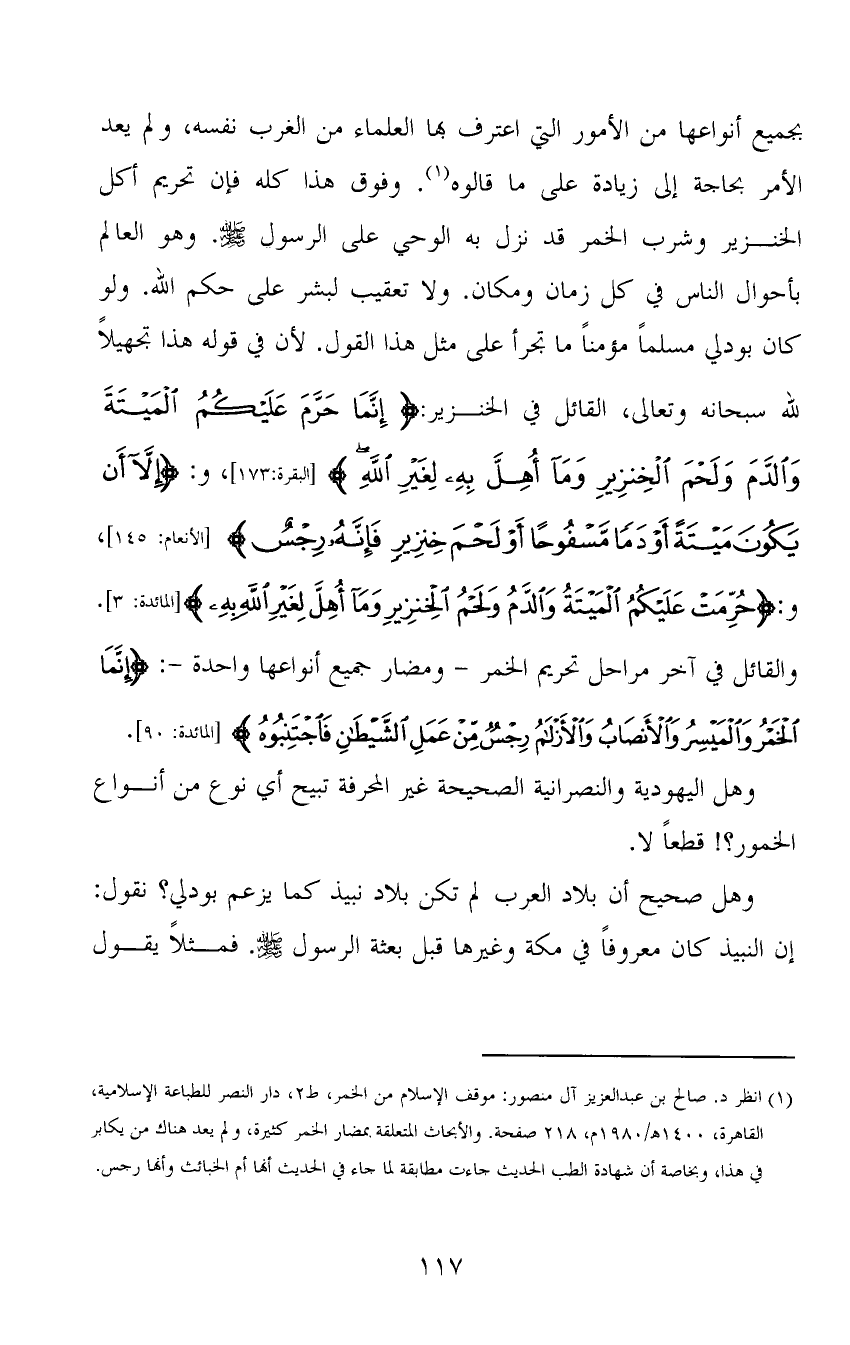 بجميع أنواعها من الأمور التي اعترف بها العلماء من الغرب نفسه، ولم يعد
الأمر بحاجة إلى زيادة على ما قالوه(١). وفوق هذا كله فإن تحريم أكل
الخنـــزير وشرب الخمر قد نزل به الوحي على الرسول ﷺ. وهو العالم
بأحوال الناس في كل زمان ومكان. ولا تعقيب لبشر على حكم الله. ولو
كان بودلي مسلماً مؤمناً ما تجرأ على مثل هذا القول. لأن في قوله هذا تجهيلاً
لله سبحانه وتعالى، القائل في الخنـــزير:﴿ إِنَّمَا حَرَّمَ عَلَيْكُمُ ٱلْمَيْتَةَ
وَٱلدَّمَ وَلَحْمَ ٱلْخِنزِيرِ وَمَآ أُهِلَّ بِهِۦ لِغَيْرِ ٱللَّهِۖ ﴾ [البقرة:١٧٣]، و: ﴿إِلَّآ أَن
يَكُونَ مَيْتَةً أَوْ دَمًا مَّسْفُوحًا أَوْ لَحْمَ خِنزِيرٍ فَإِنَّهُۥ رِجْسٌ ﴾ [الأنعام: ١٤٥]،
و:﴿حُرِّمَتْ عَلَيْكُمُ ٱلْمَيْتَةُ وَٱلدَّمُ وَلَحْمُ ٱلْخِنزِيرِ وَمَآ أُهِلَّ لِغَيْرِ ٱللَّهِ بِهِۦ ﴾[المائدة: ٣].
والقائل في آخر مراحل تحريم الخمر – ومضار جميع أنواعها واحدة –: ﴿إِنَّمَا
ٱلْخَمْرُ وَٱلْمَيْسِرُ وَٱلْأَنصَابُ وَٱلْأَزْلَٰمُ رِجْسٌ مِّنْ عَمَلِ ٱلشَّيْطَٰنِ فَٱجْتَنِبُوهُ ﴾ [المائدة: ٩٠].
وهل اليهودية والنصرانية الصحيحة غير المحرفة تبيح أي نوع من أنـــواع
الخمور؟! قطعاً لا.
وهل صحيح أن بلاد العرب لم تكن بلاد نبيذ كما يزعم بودلي؟ نقول:
إن النبيذ كان معروفاً في مكة وغيرها قبل بعثة الرسول ﷺ. فمـــثلاً يقـــول
(١) انظر د. صالح بن عبدالعزيز آل منصور: موقف الإسلام من الخمر، ط٢، دار النصر للطباعة الإسلامية،
القاهرة، ١٤٠٠هـ/١٩٨٠م، ٢١٨ صفحة. والأبحاث المتعلقة بمضار الخمر كثيرة، ولم يعد هناك من يكابر
في هذا، وبخاصة أن شهادة الطب الحديث جاءت مطابقة لما جاء في الحديث أنها أم الخبائث وأنها رجس.
١١٧